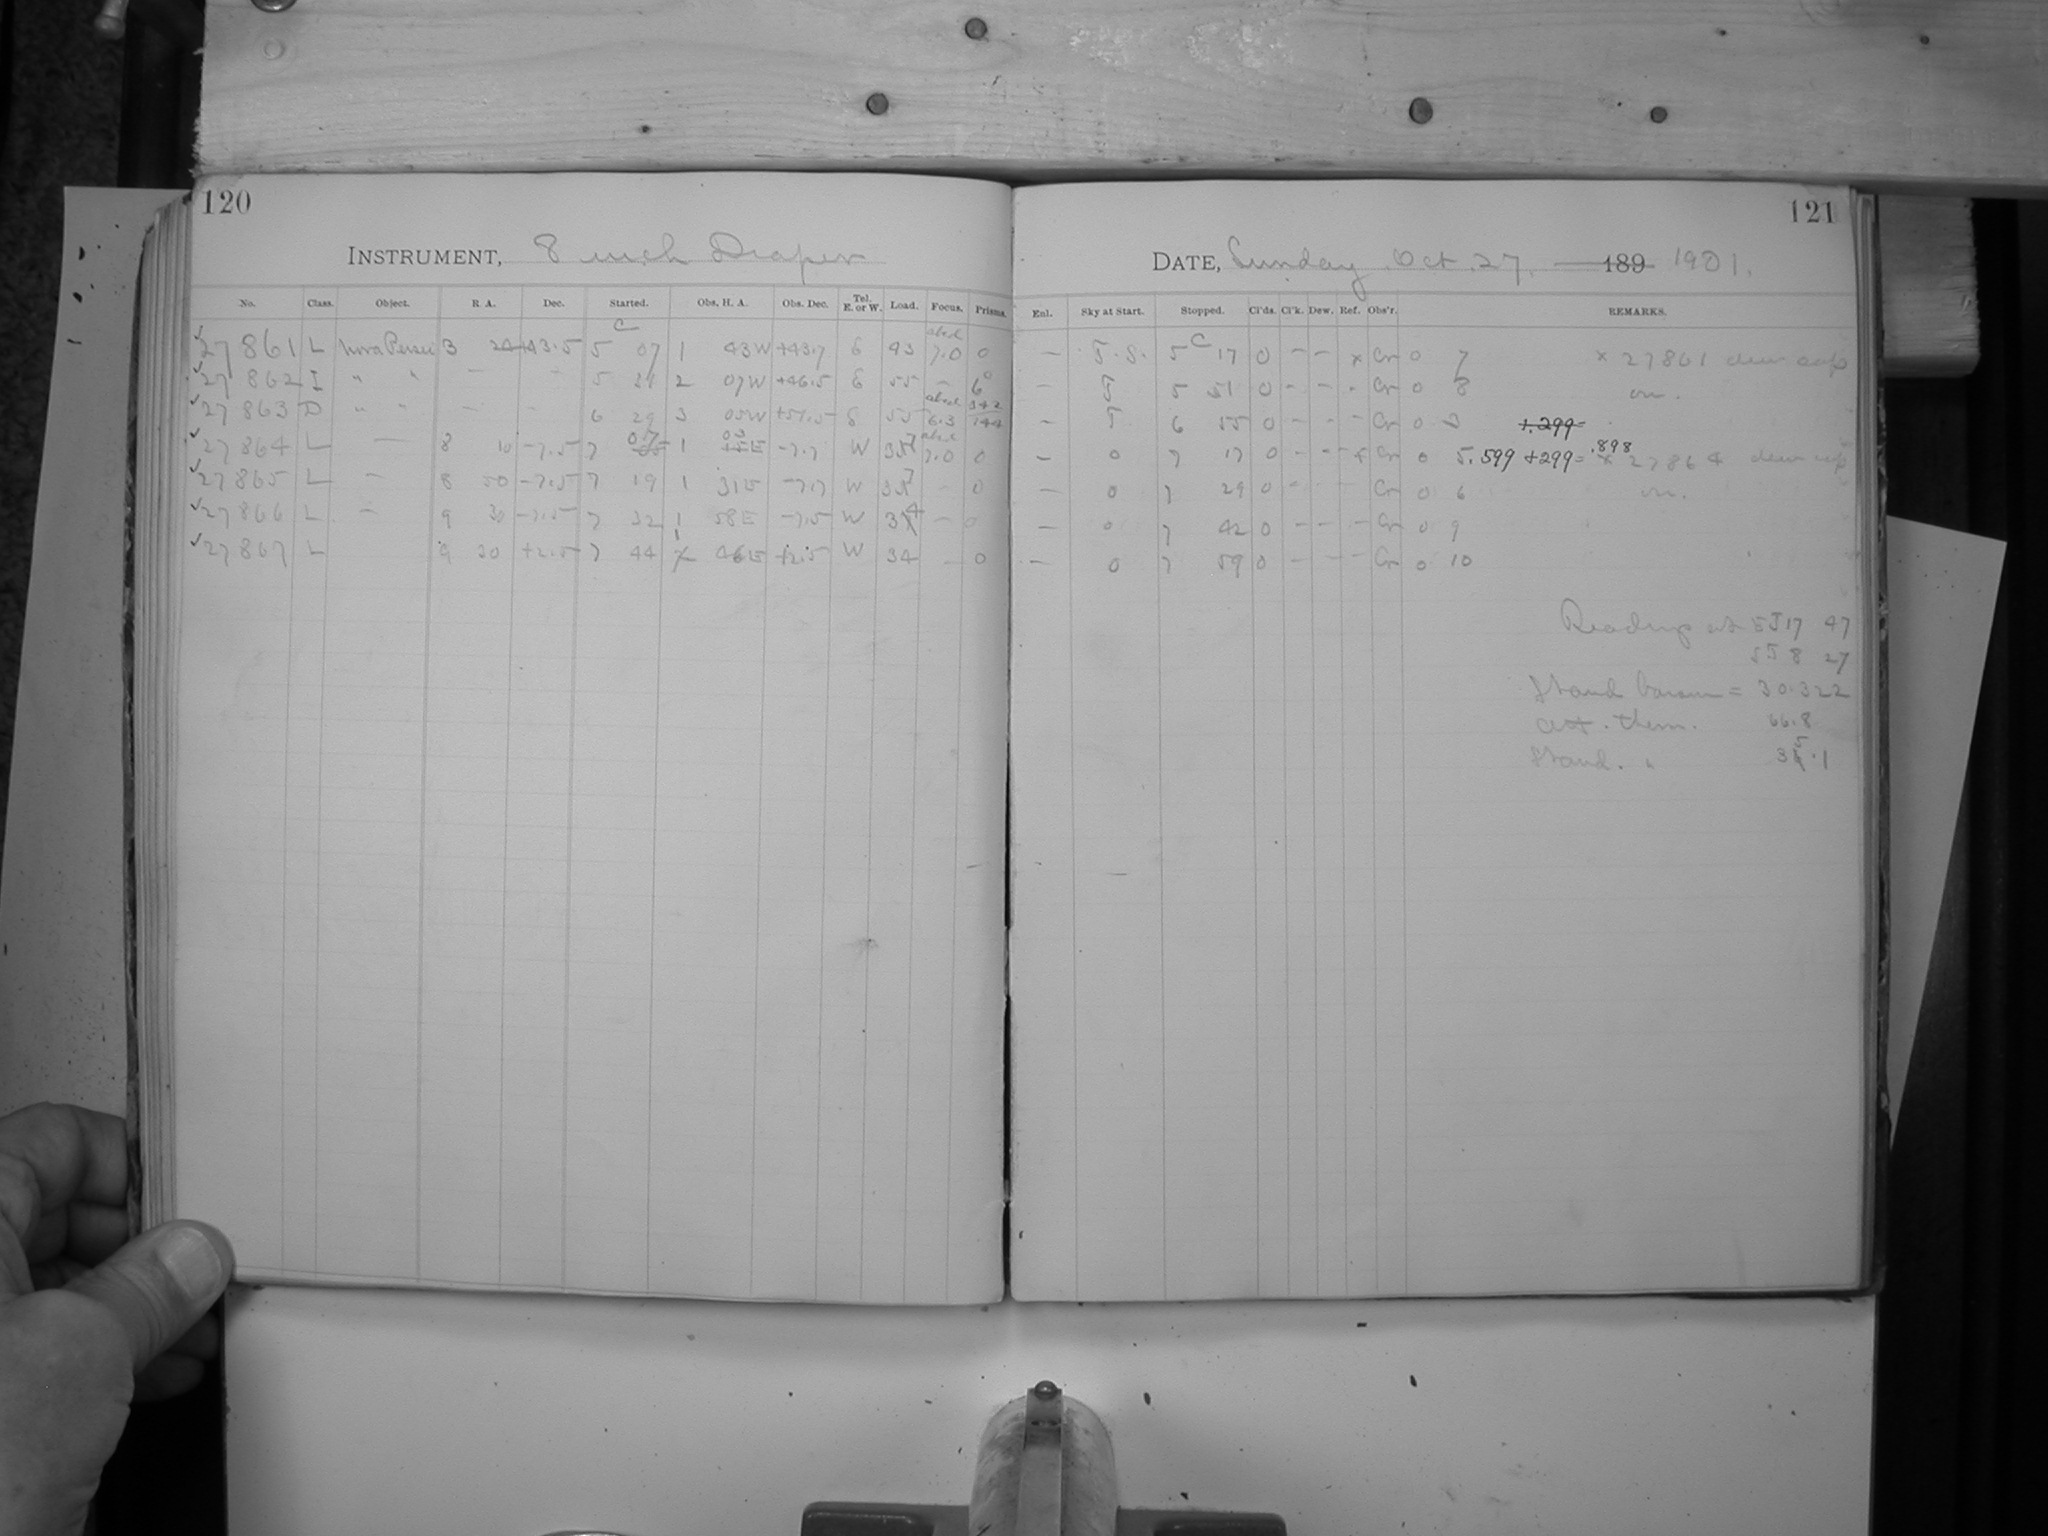 120
INSTRUMENT, 8 inch Draper
No. Class. Object. R. A. Dec. Started. Obs. H. A. Obs. Dec. Tel. E. or W. Load. Focus. Prisms.
27 861 L Nova Persei 3 24 +43.5 5 07 1 43W +43.7 E 43 7.0 0
27 862 I " " — — 5 2 07W +46.5 E 55 – 6
27 863 D " " — — 6 29 3 05W +51.5 E 55 6.3 144
27 864 L — 8 10 -7.5 7 07 1 03 E -7.7 W 7.0 0
27 865 L — 8 50 -7.5 7 19 1 31E -7.7 W 37 – 0
27 866 L — 9 30 -7.5 7 32 1 58E -7.5 W 34 – 0
27 867 L 9 30 +2.5 7 44 1 46E +2.5 W 34 – 0
121
DATE, Sunday Oct. 27. 189 1901.
Enl. Sky at Start. Stopped. Cl'ds. Cl'k. Dew. Ref. Obs'r. REMARKS.
— T.S. 5 C 17 0 – – x Cr 0 7 x 27861 dew cap
— T 5 51 0 – – - Cr 0 8 on.
— T 6 55 0 – – – Cr 0 3 +.299=
— 0 7 17 0 – – x Cr 0 5.599 +299= .898 x 27864 dew cap
— 0 7 29 0 – – – Cr 0 6 on.
— 0 7 42 0 – – – Cr 0 9
— 0 7 59 0 – – – Cr 0 10
Reading at 5 J 17 47
8 27
Stand barom = 30.322
att. therm. 66.8
Stand. " 35.1